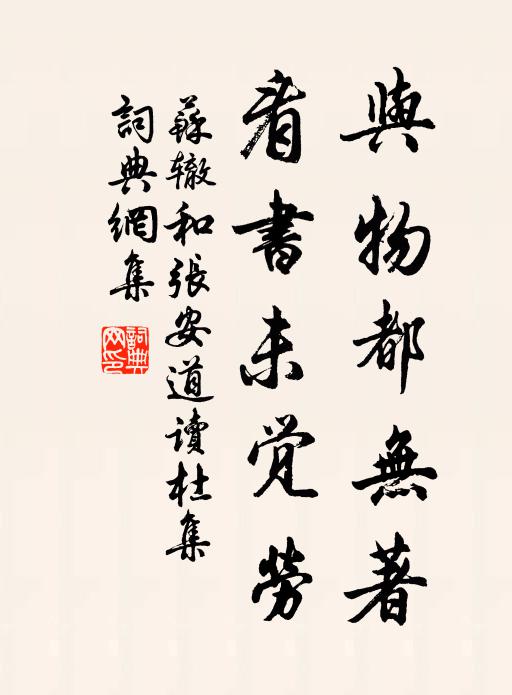 與物都無著
看書未覺勞
蘇轍和張安道讀杜集
詞典網集
詞典網印